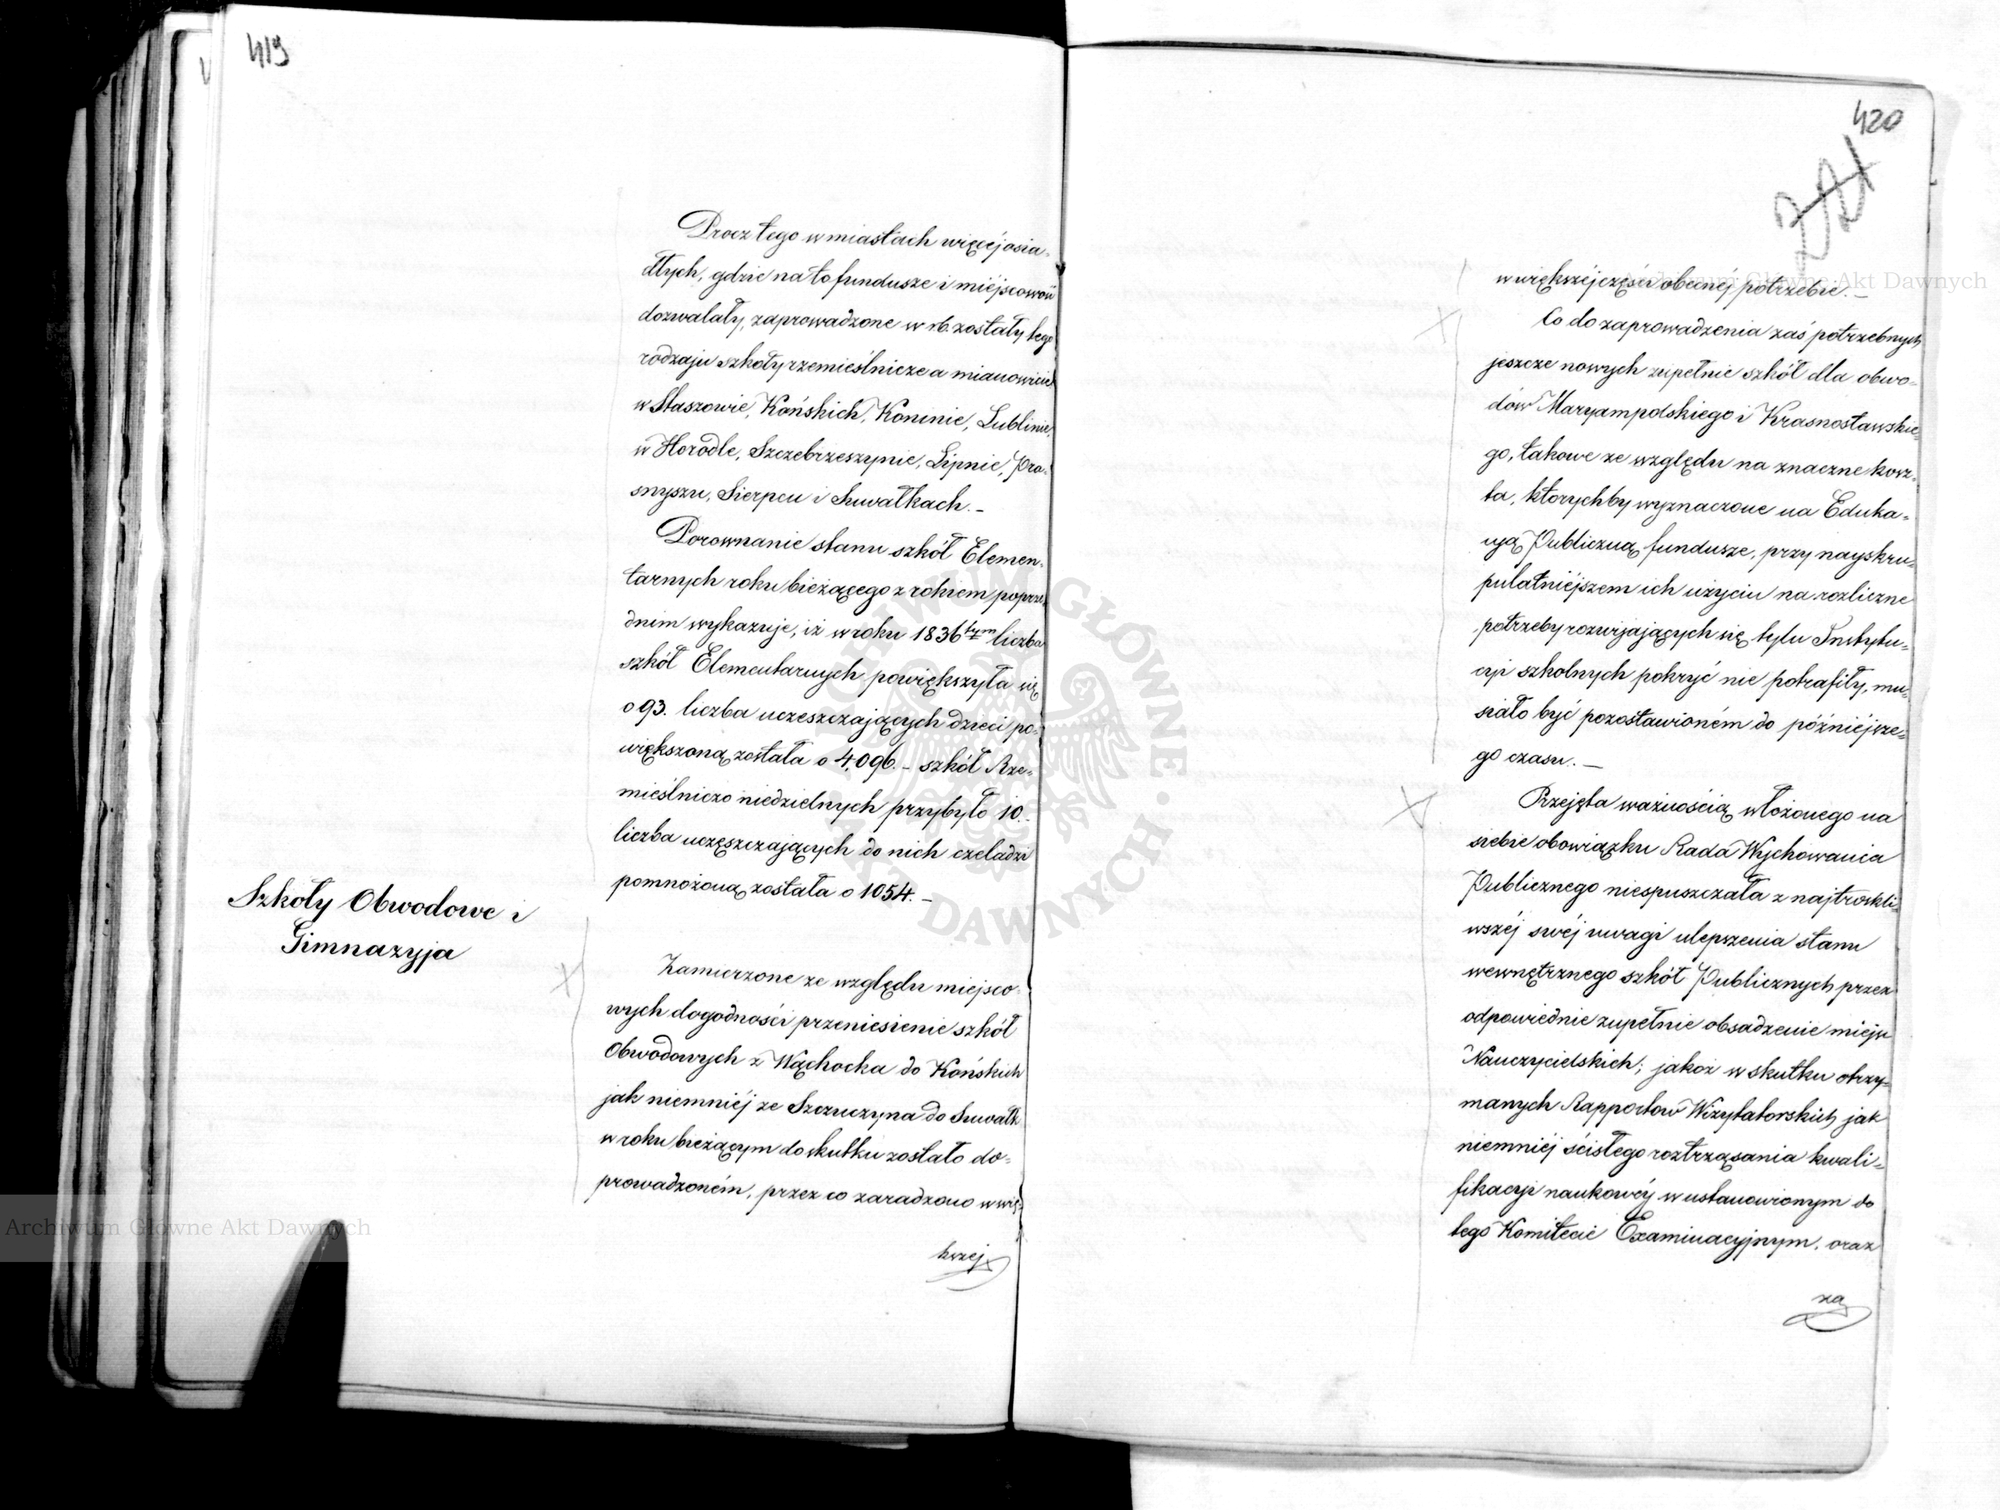 419
Procz tego w miastach więcéj osia-
dłych, gdzie na to fundusze i miéjscowość
dozwalały, zaprowadzone w rb. zostały tego
rodzaju szkoły rzemieślnicze a mianowicie
w Staszowie, Końskich, Koninie, Lublinie,
w Horodle, Szczebrzeszynie, Lipnie, Pra-
snyszu, Sierpcu i Suwałkach. –
Porownanie stanu szkół Elemen-
tarnych roku bieżącego z rokiem poprze
dnim wykazuje, iż w roku 1836tym liczba
szkół Elementarnych powiększyła się
o 93. liczba uczeszczających dzieci po-
większoną została o 4,096. – szkół Rze-
mieślniczo niedzielnych przybyło 10. –
liczba uczęszczających do nich czeladzi
pomnożoną została o 1054. –
Szkoły Obwodowe i
Gimnazyja
Zamierzone ze względu miejsco-
wych dogodności przeniesienie szkół
Obwodowych z Wąchocka do Końskich
jak niemniéj ze Szczuczyna do Suwałk
w roku bieżącym do skutku zostało do-
prowadzoném, przez co zaradzono w wię-
kszej
420
w większéj części obecnéj potrzebie. –
Co do zaprowadzenia zaś potrzebnych
jeszcze nowych zupełnie szkół dla obwo-
dów Maryampolskiego i Krasnostawskie-
go, takowe ze względu na znaczne kosz-
ta, którychby wyznaczone na Eduka-
cyą Publiczną fundusze, przy nayskru-
pulatniéjszem ich użyciu na rozliczne
potrzeby rozwijających się tylu Instytu-
cyi szkolnych pokryć nie potrafiły, mu-
siało być pozostawioném do późniéjsze-
go czasu. –
Przejęta ważnością włożonego na
siebie obowiązku Rada Wychowania
Publicznego niespuszczała z najtroskli-
wszéj swéj uwagi ulepszenia stanu
wewnętrznego szkół Publicznych przez
odpowiednie zupełnie obsadzenie miejsc
Nauczycielskich; jakoż w skutku otrzy-
manych Rapportow Wizytatorskich, jak
niemniéj ścisłego roztrząsania kwali-
fikacyi naukowéj w ustanowionym do
tego Komitecie Examinacyjnym, oraz
za
Archiwum Główne Akt Dawnych
Archiwum Główne Akt Dawnych
ARCHIWUM GŁÓWNE · AKT DAWNYCH ·